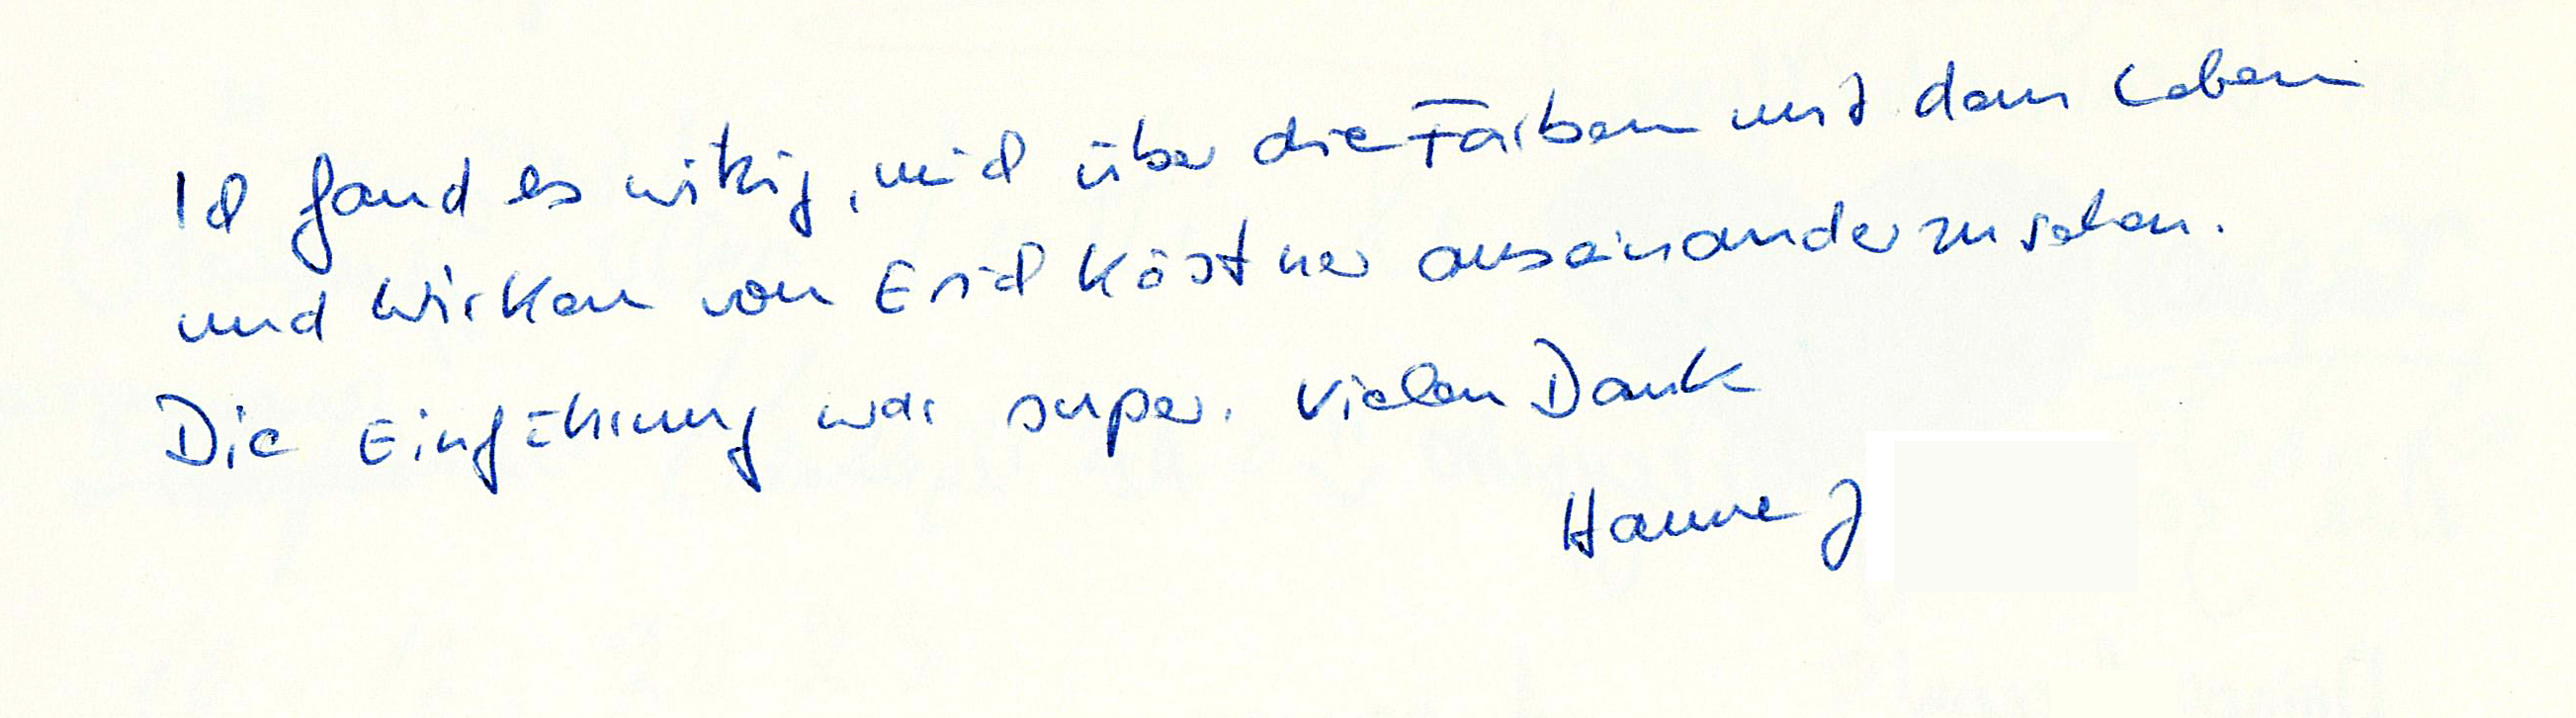 Ich fand es witzig, mich über die Farben mit dem Leben
und Wirken von Erich Kästner auseinanderzusetzen.
Die Einführung war super. Vielen Dank
Hanne J